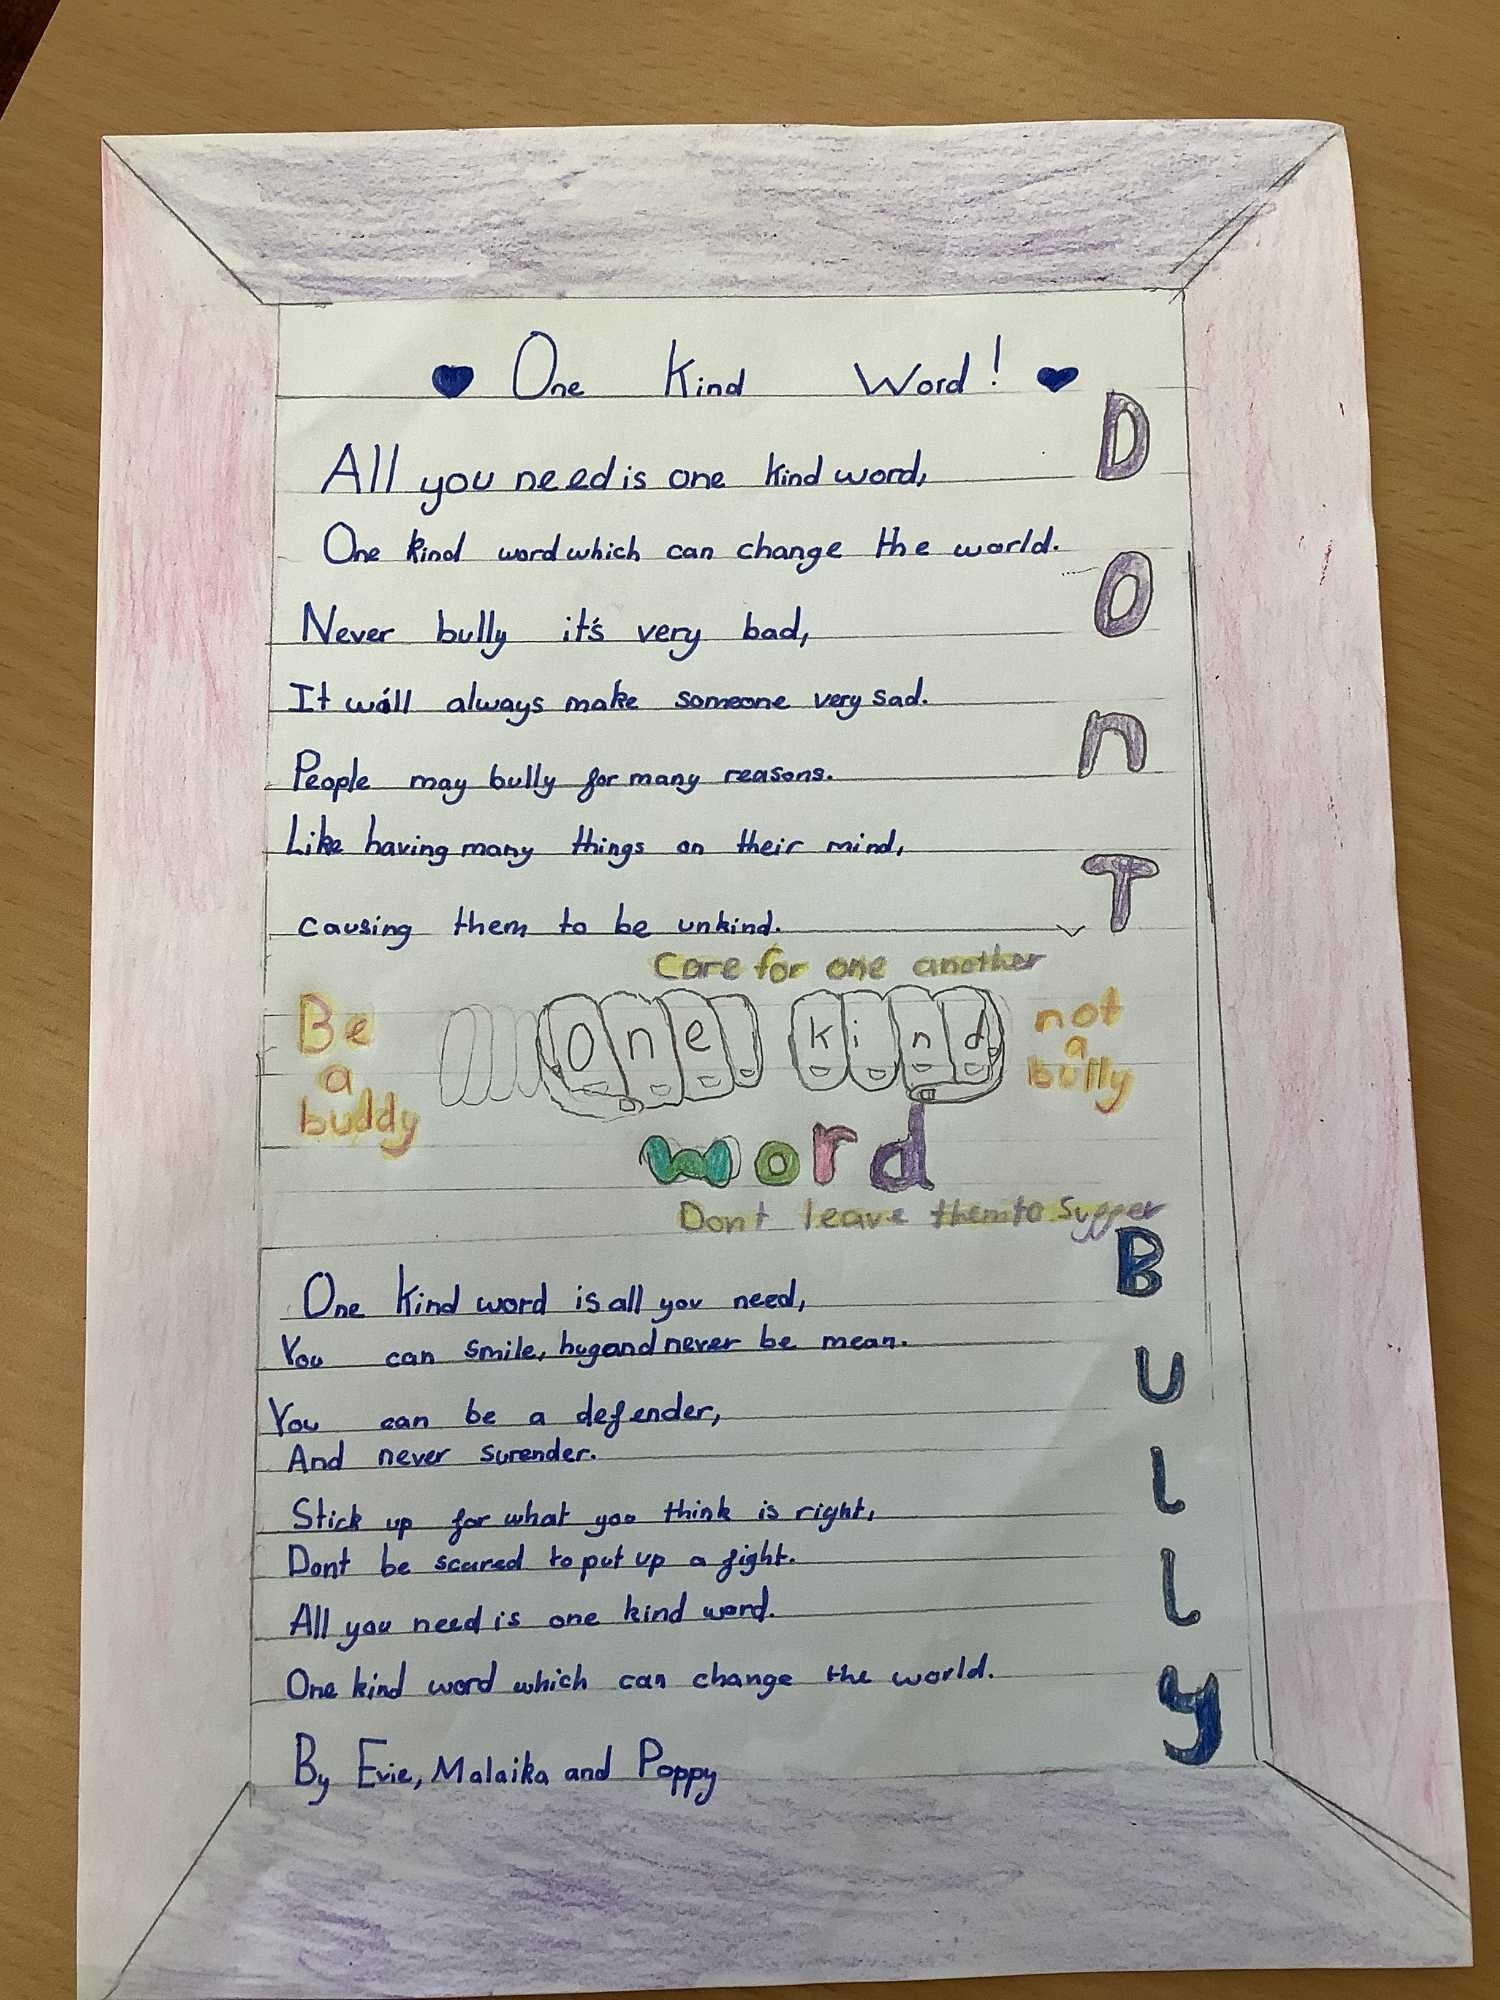 One Kind Word!
All you need is one kind word,
One kind word which can change the world.
Never bully it's very bad,
It will always make someone very sad.
People may bully for many reasons.
Like having many things on their mind,
causing them to be unkind.
DOnT
Care for one another
Be
a
buddy
One kind
word
not
a
bully
Dont leave them to suffer
One kind word is all you need,
You can smile, hug and never be mean.
You can be a defender,
And never surender.
Stick up for what you think is right,
Dont be scared to put up a fight.
All you need is one kind word.
One kind word which can change the world.
By Evie, Malaika and Poppy
Bully